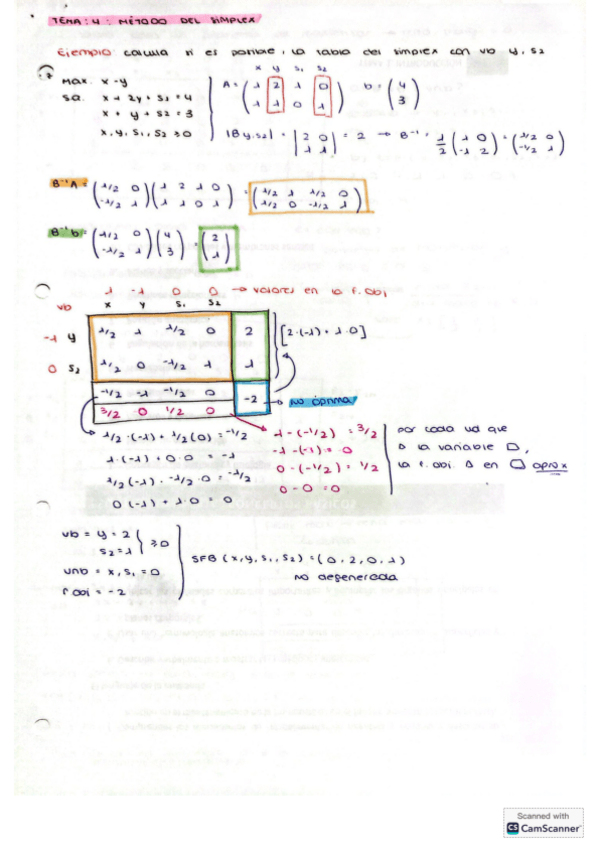 TEMA: 4: MÉTODO DEL SIMPLEX
Ejemplo: calcula si es posible, la tabla del simplex con vb y, s2
Max. x-y
sa. x + 2y + s1 = 4
x + y + s2 = 3
x, y, s1, s2 ≥ 0
x y s1 s2
A = (1 2 1 0
1 1 0 1)
b = (4
3)
|By,s2| = |2 0
1 1| = 2 → B⁻¹ = 1/2 (1 0
-1 2) = (1/2 0
-1/2 1)
B⁻¹A = (1/2 0
-1/2 1) (1 2 1 0
1 1 0 1) = (1/2 1 1/2 0
1/2 0 -1/2 1)
B⁻¹b = (1/2 0
-1/2 1) (4
3) = (2
1)
1 -1 0 0 → valores en la f. obj
vb x y s1 s2
-1 y 1/2 1 1/2 0 2 [2·(-1) + 1·0]
0 s2 1/2 0 -1/2 1 1
-1/2 -1 -1/2 0 -2 → no óptima
3/2 0 1/2 0
1/2·(-1) + 1/2(0) = -1/2
1·(-1) + 0·0 = -1
1/2(-1) - 1/2·0 = -1/2
0(-1) + 1·0 = 0
1-(-1/2) = 3/2
-1-(-1) = 0
0-(-1/2) = 1/2
0-0 = 0
por cada ud que
Δ la variable □,
la f. obj. Δ en □ aprox
vb = y = 2
s2 = 1
≥ 0
vnb = x, s1 = 0
f obj = -2
SFB (x, y, s1, s2) = (0, 2, 0, 1)
no degenerada
Scanned with
CS CamScanner